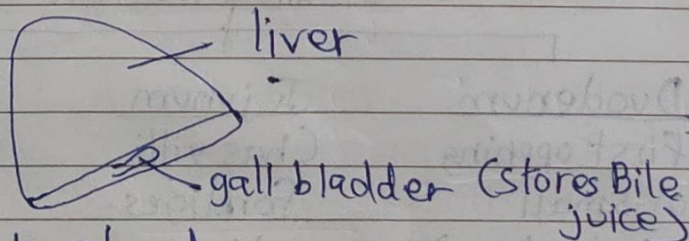 liver
gall bladder (stores Bile
juice)